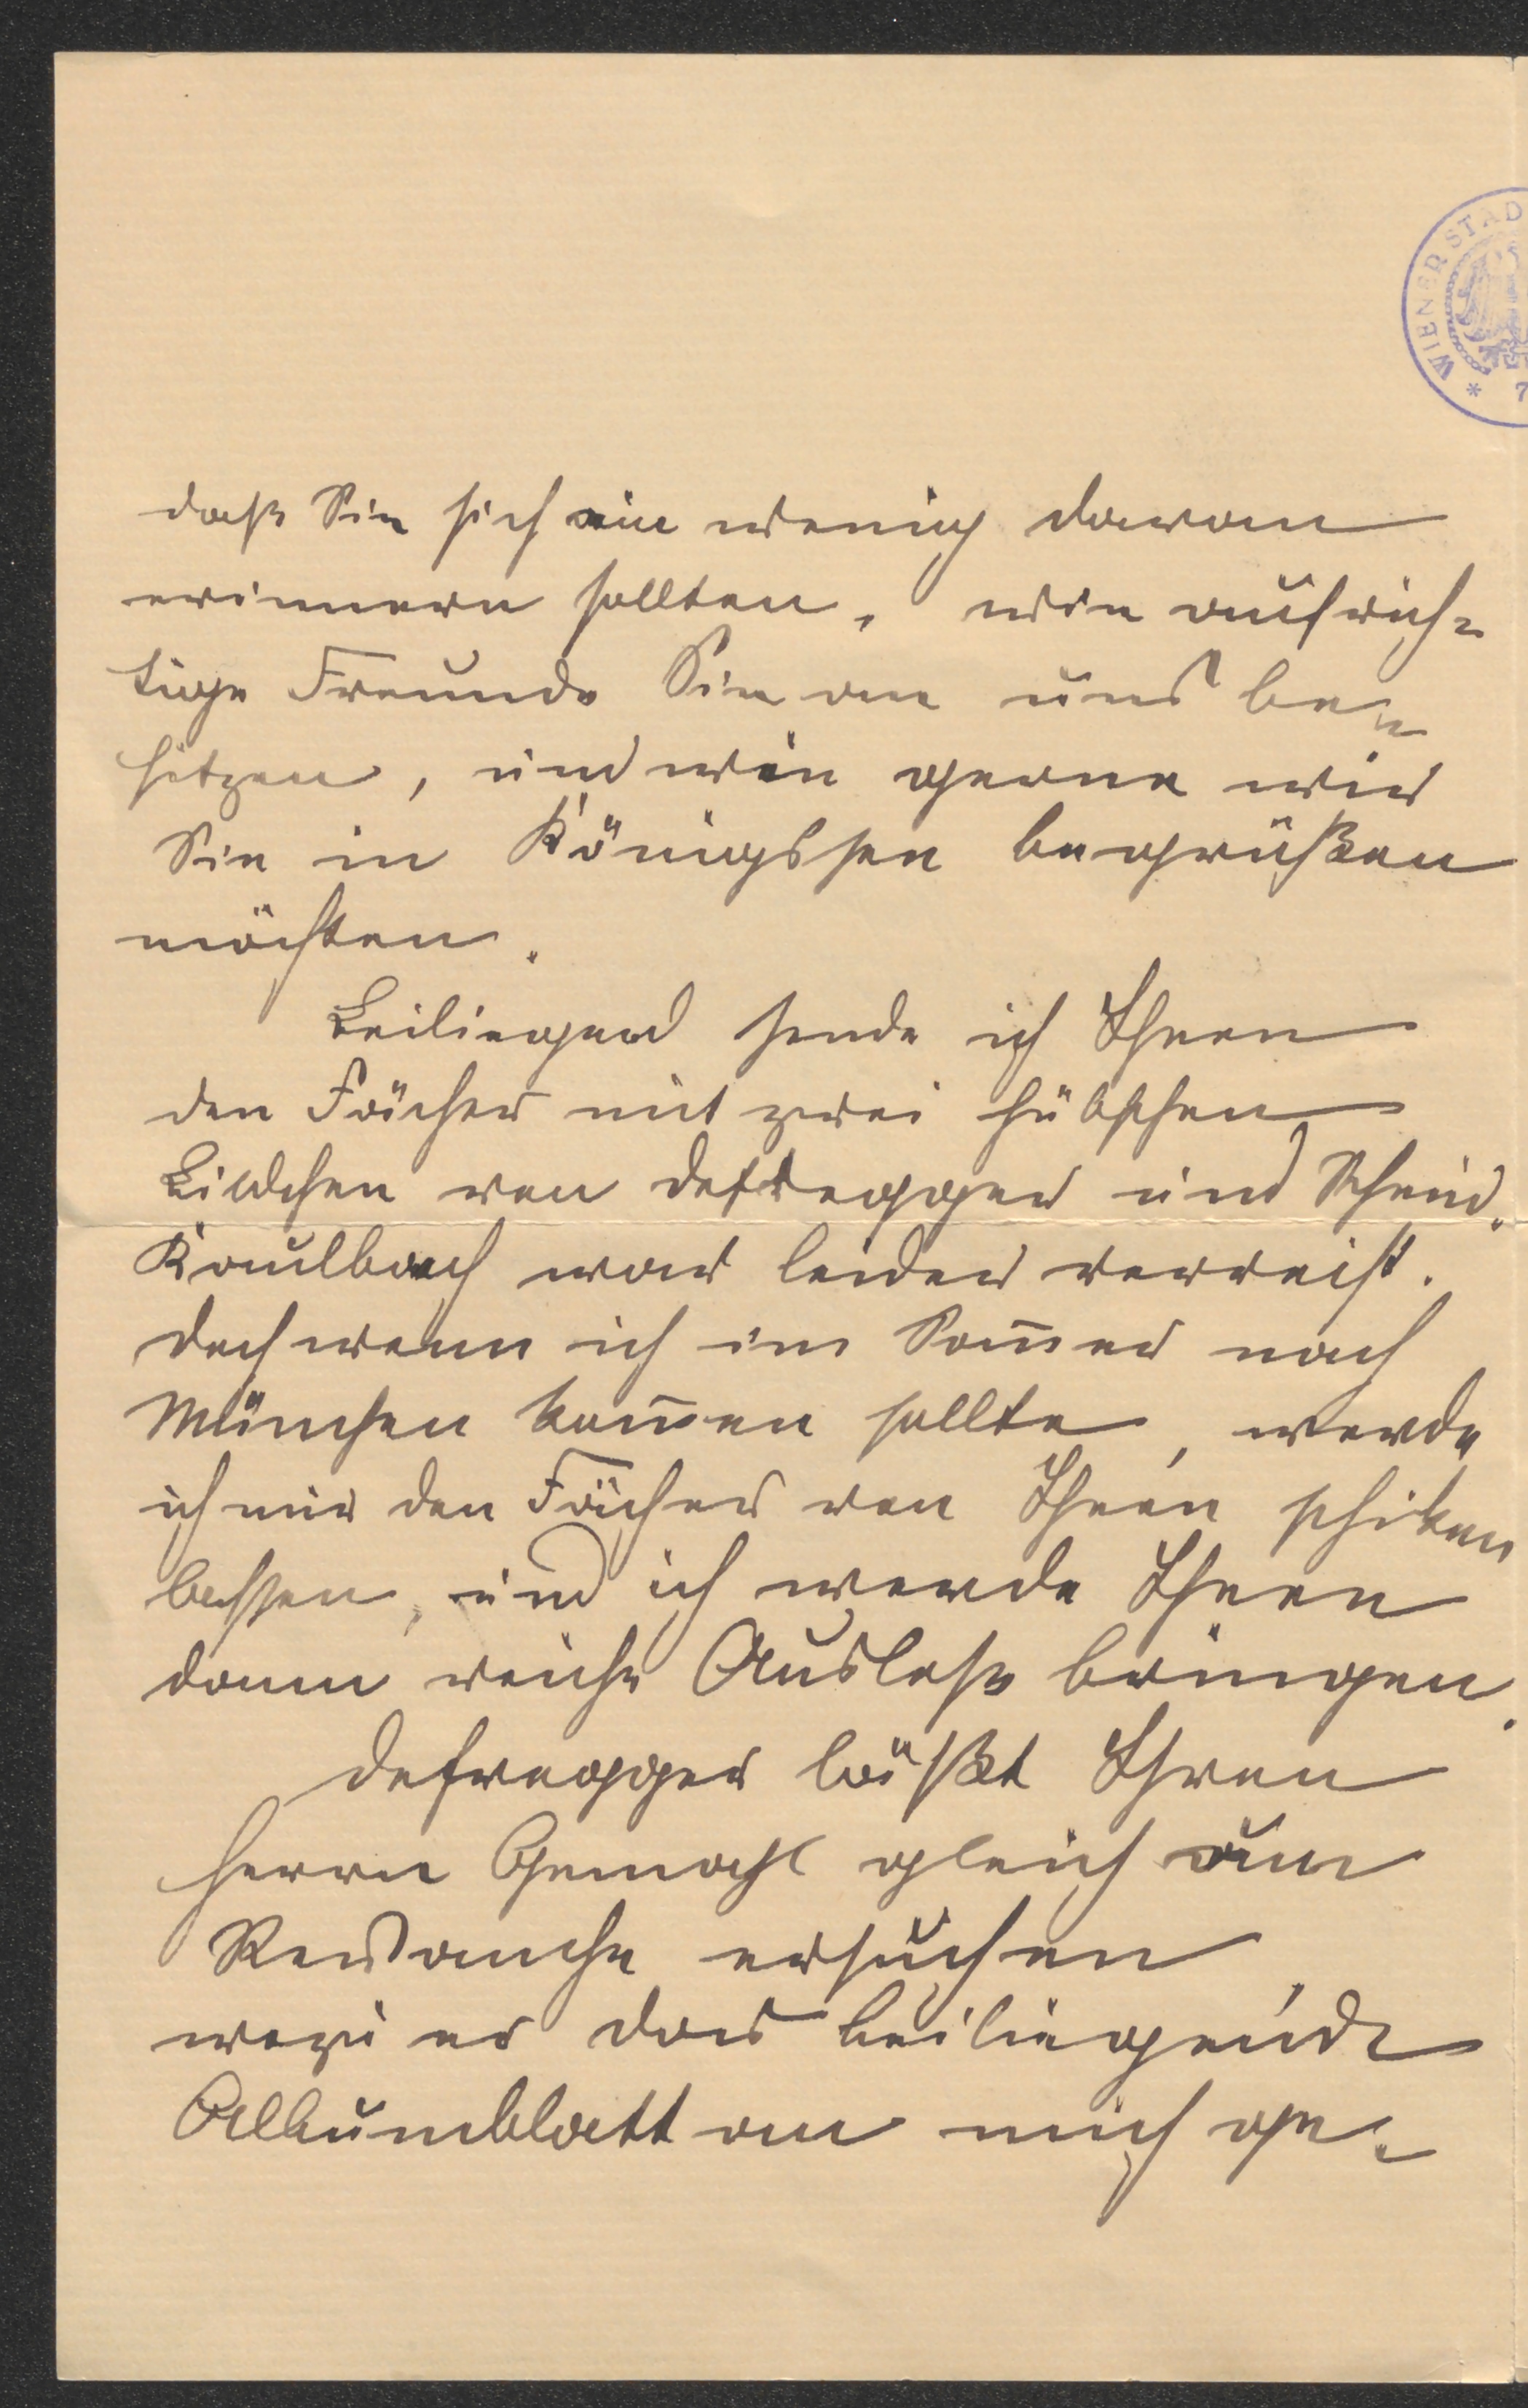 WIENER STAD
* 7
daß Sie sich ein wenig daran
erinnern sollten, wie aufrich-
tige Freunde Sie an uns be-
sitzen, und wie gerne wir
Sie in Königssee begrüßen
möchten.
Beiliegend sende ich Ihnen
den Fächer mit zwei hübschen
Bildchen von Defregger und
Kaulbach war leider verreist.
Doch wenn ich im Som̅er nach
München kom̅en sollte, werde
ich mir den Fächer von Ihnen schiken
lassen, und ich werde Ihnen
dann reiche Auslese bringen.
Defregger läßt Ihren
Herrn Gemahl gleich um
Revanche ersuchen,
wozu er das beiliegende
Albumblatt an mich ge-